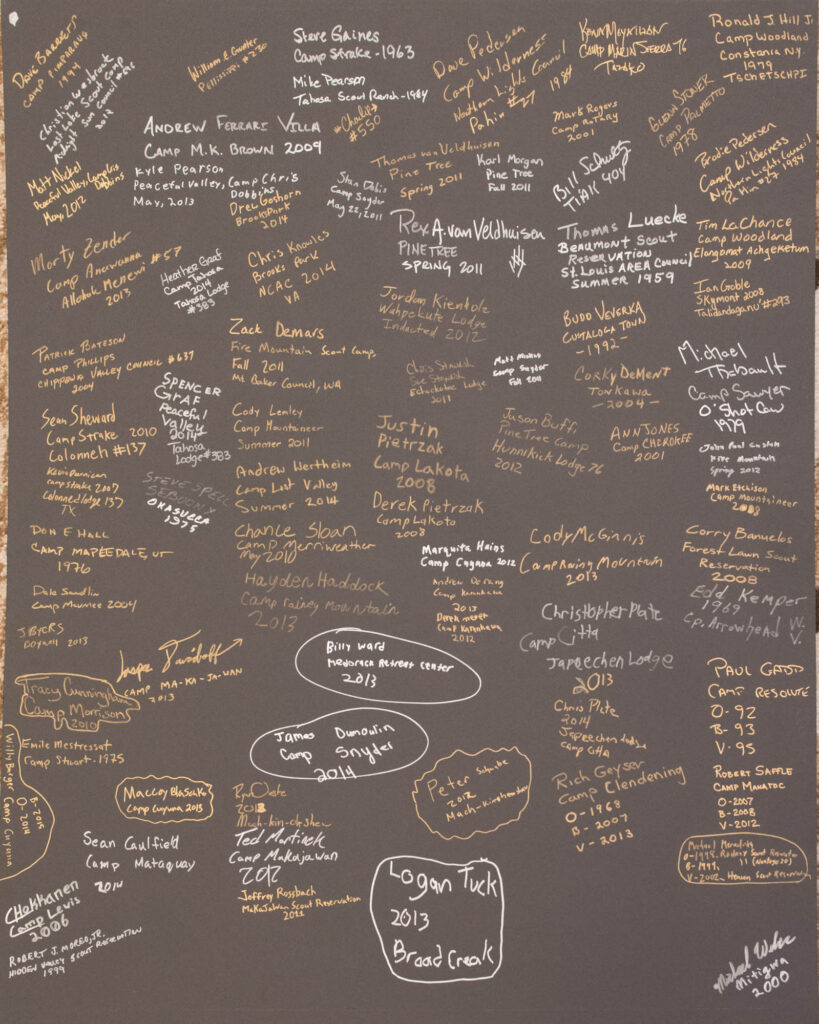 Dave Barrett
1994
William E. Gunter
Pellissippi #230
Steve Gaines
Camp Strake - 1963
Mike Pearson
Tahosa Scout Ranch - 1984
Dave Pedersen
Camp Wilderness
Northern Lights Council
Pa-hin #27 1984
Camp Marin Sierra 76
Ronald J. Hill Jr
Camp Woodland
Constania N.Y.
1979
Tschetschpi
Christian
Lost Lake Scout Camp
2014
Charlie
#550
Andrew Ferrari Villa
Camp M.K. Brown 2009
Mark Rogers
Camp Rotary
2001
Glenn Stoner
Camp Palmetto
1978
Matt Nickel
Peaceful Valley, Camp Chris Dobbins
May, 2012
Kyle Pearson
Peaceful Valley, Camp Chris Dobbins
May, 2013
Drec Goshorn
Brooks Park
2014
Stan Dobis
Camp Snyder
May 22, 2011
Thomas van Veldhuisen
Pine Tree
Spring 2011
Karl Morgan
Pine Tree
Fall 2011
Bill Schultz
Tiak 404
Brodie Pedersen
Camp Wilderness
Northern Lights Council
Pa-Hin #27 1984
Morty Zender
Camp Anawanna
Allohak Menewi #57
2013
Heather Graf
Camp Tahosa
2014
Tahosa Lodge
#383
Chris Knowles
Brooks Park
NCAC 2014
VA
Rex A. van Veldhuisen
Pine Tree
Spring 2011
Thomas Luecke
Beaumont Scout
Reservation
St. Louis Area Council
Summer 1959
Tim LaChance
Camp Woodland
Elangomat Achgeketum
2009
Ian Goble
Skymont 2008
Talidandaganu' #293
Jordan Kienholz
Wahpekute Lodge
Inducted 2012
Budd Veverka
Custaloga Town
- 1992 -
Patrick Bateson
Camp Phillips
Chippewa Valley Council #637
2004
Zack Demars
Fire Mountain Scout Camp,
Fall 2011
Mt Baker Council, WA
Chris
2011
Camp Snyder
Fall 2011
Corky DeMent
Tonkawa
- 2004 -
Michael
Thibault
Camp Sawyer
O'Shot Caw
1979
Spencer
Graf
Peaceful
Valley
2014
Tahosa
Lodge #383
Sean Sheward
Camp Strake 2010
Colonneh #137
Camp Strake 2007
Colonneh Lodge 137
TX
Cody Lemley
Camp Mountaineer
Summer 2011
Justin
Pietrzak
Camp Lakota
2008
Derek Pietrzak
Camp Lakota
2008
Jason Buff,
Pine Tree Camp
Hunnikick Lodge 76
2012
Ann Jones
Camp Cherokee
2001
Fire Mountain
Spring 2012
Mark Etchison
Camp Mountaineer
2008
Steve Spell
Okasucca
1975
Andrew Wertheim
Camp Lost Valley
Summer 2014
Don E Hall
Camp Mapledale, UT
1976
Chance Sloan
Camp Merriweather
May 2010
Marquita Hains
Camp Cuyuna 2012
Cody McGinnis
Camp Rainey Mountain
2013
Corry Banuelos
Forest Lawn Scout
Reservation
2008
Dale Sandlin
Camp Maumee 2004
Hayden Haddock
Camp Rainey Mountain
2013
Camp Karankawa
2013
Camp Karankawa
2012
Edd Kemper
1969
Cp. Arrowhead W.
V.
J Byers
2013
Christopher Plate
Camp Citta
Japeechen Lodge
2013
Camp Ma-Ka-Ja-Wan
2013
Billy Ward
Retreat Center
2013
Chris Plate
2014
Japeechen Lodge
Camp Citta
Paul Gadd
Camp Resolute
O- 92
B- 93
V- 95
Tracy Cunningham
Camp Morrison
2010
Willy Burger Camp Cuyuna
O- 2014
B- 2015
Emile Mestressat
Camp Stuart - 1975
James Dumoulin
Camp Snyder
2014
Rich Geyser
Camp Clendening
O- 1968
B- 2007
V- 2013
Robert Saffle
Camp Manatoc
O-2007
B-2008
V-2012
Camp Cuyuna 2013
Peter
2012
Sean Caulfield
Camp Mataquay
2014
Ted Martinek
Camp Makajawan
2012
Jeffrey Rossbach
Makajawan Scout Reservation
2011
Michael
O-1998
Logan Tuck
2013
Broad Creak
Camp Lewis
2006
Robert J. Moreo, Jr.
Hidden Valley Scout Reservation
1999
Mitigwa
2000